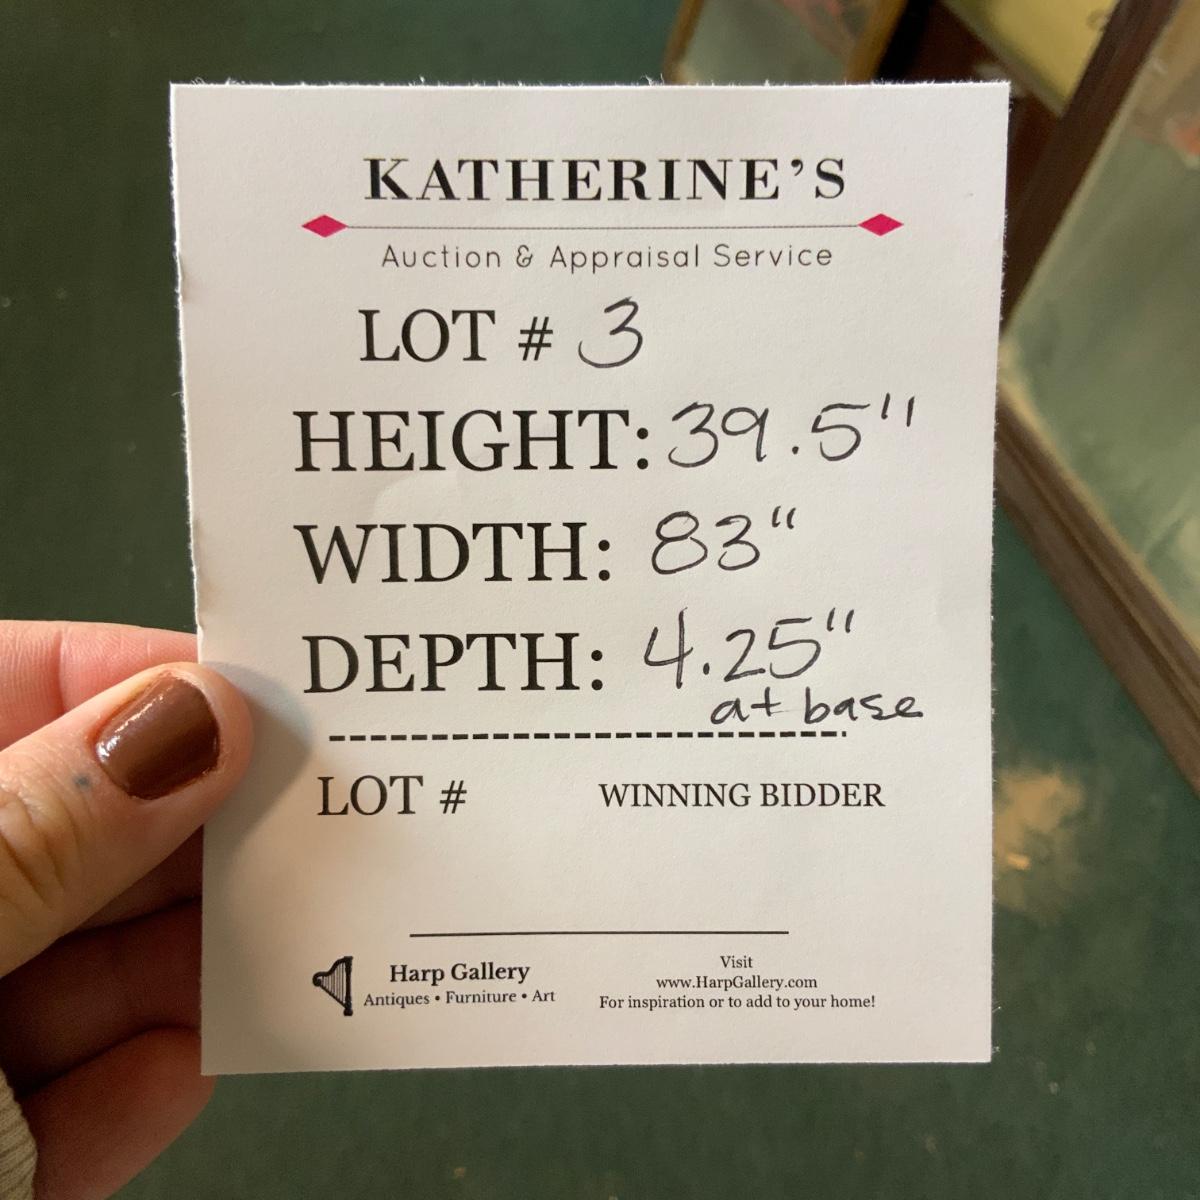 KATHERINE'S
Auction & Appraisal Service
LOT # 3
HEIGHT: 39.5"
WIDTH: 83"
DEPTH: 4.25"
at base
LOT # WINNING BIDDER
Harp Gallery
Antiques • Furniture • Art
Visit
www.HarpGallery.com
For inspiration or to add to your home!